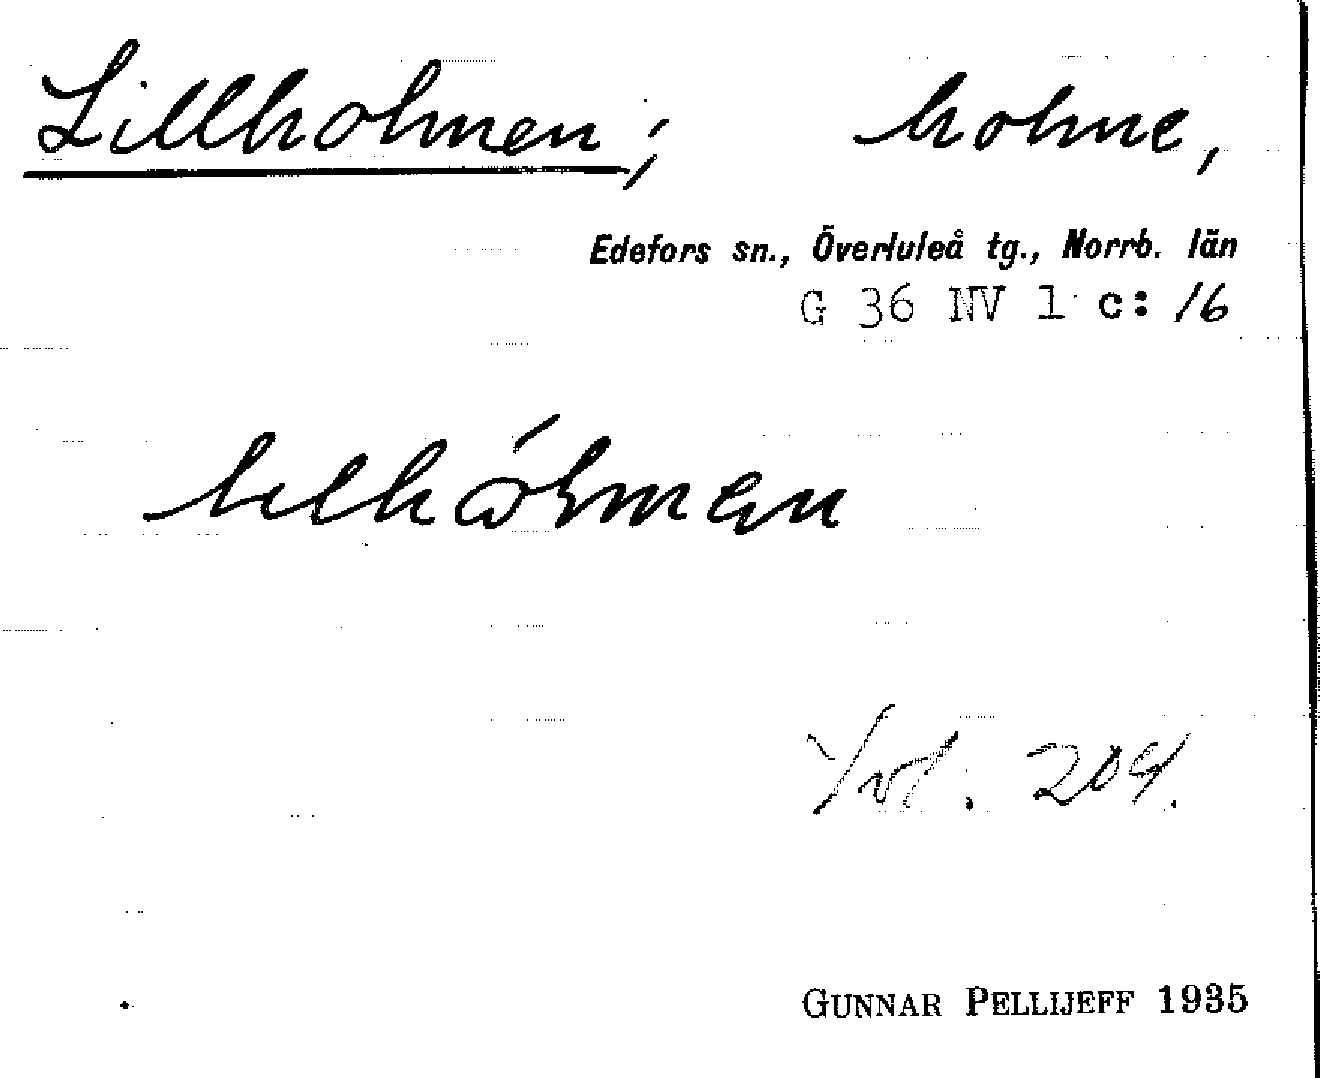 Lillholmen; holme,
Edefors sn., Överluleå tg., Norrb. län
G 36 NV 1 c: 16
204.
GUNNAR PELLIJEFF 1935